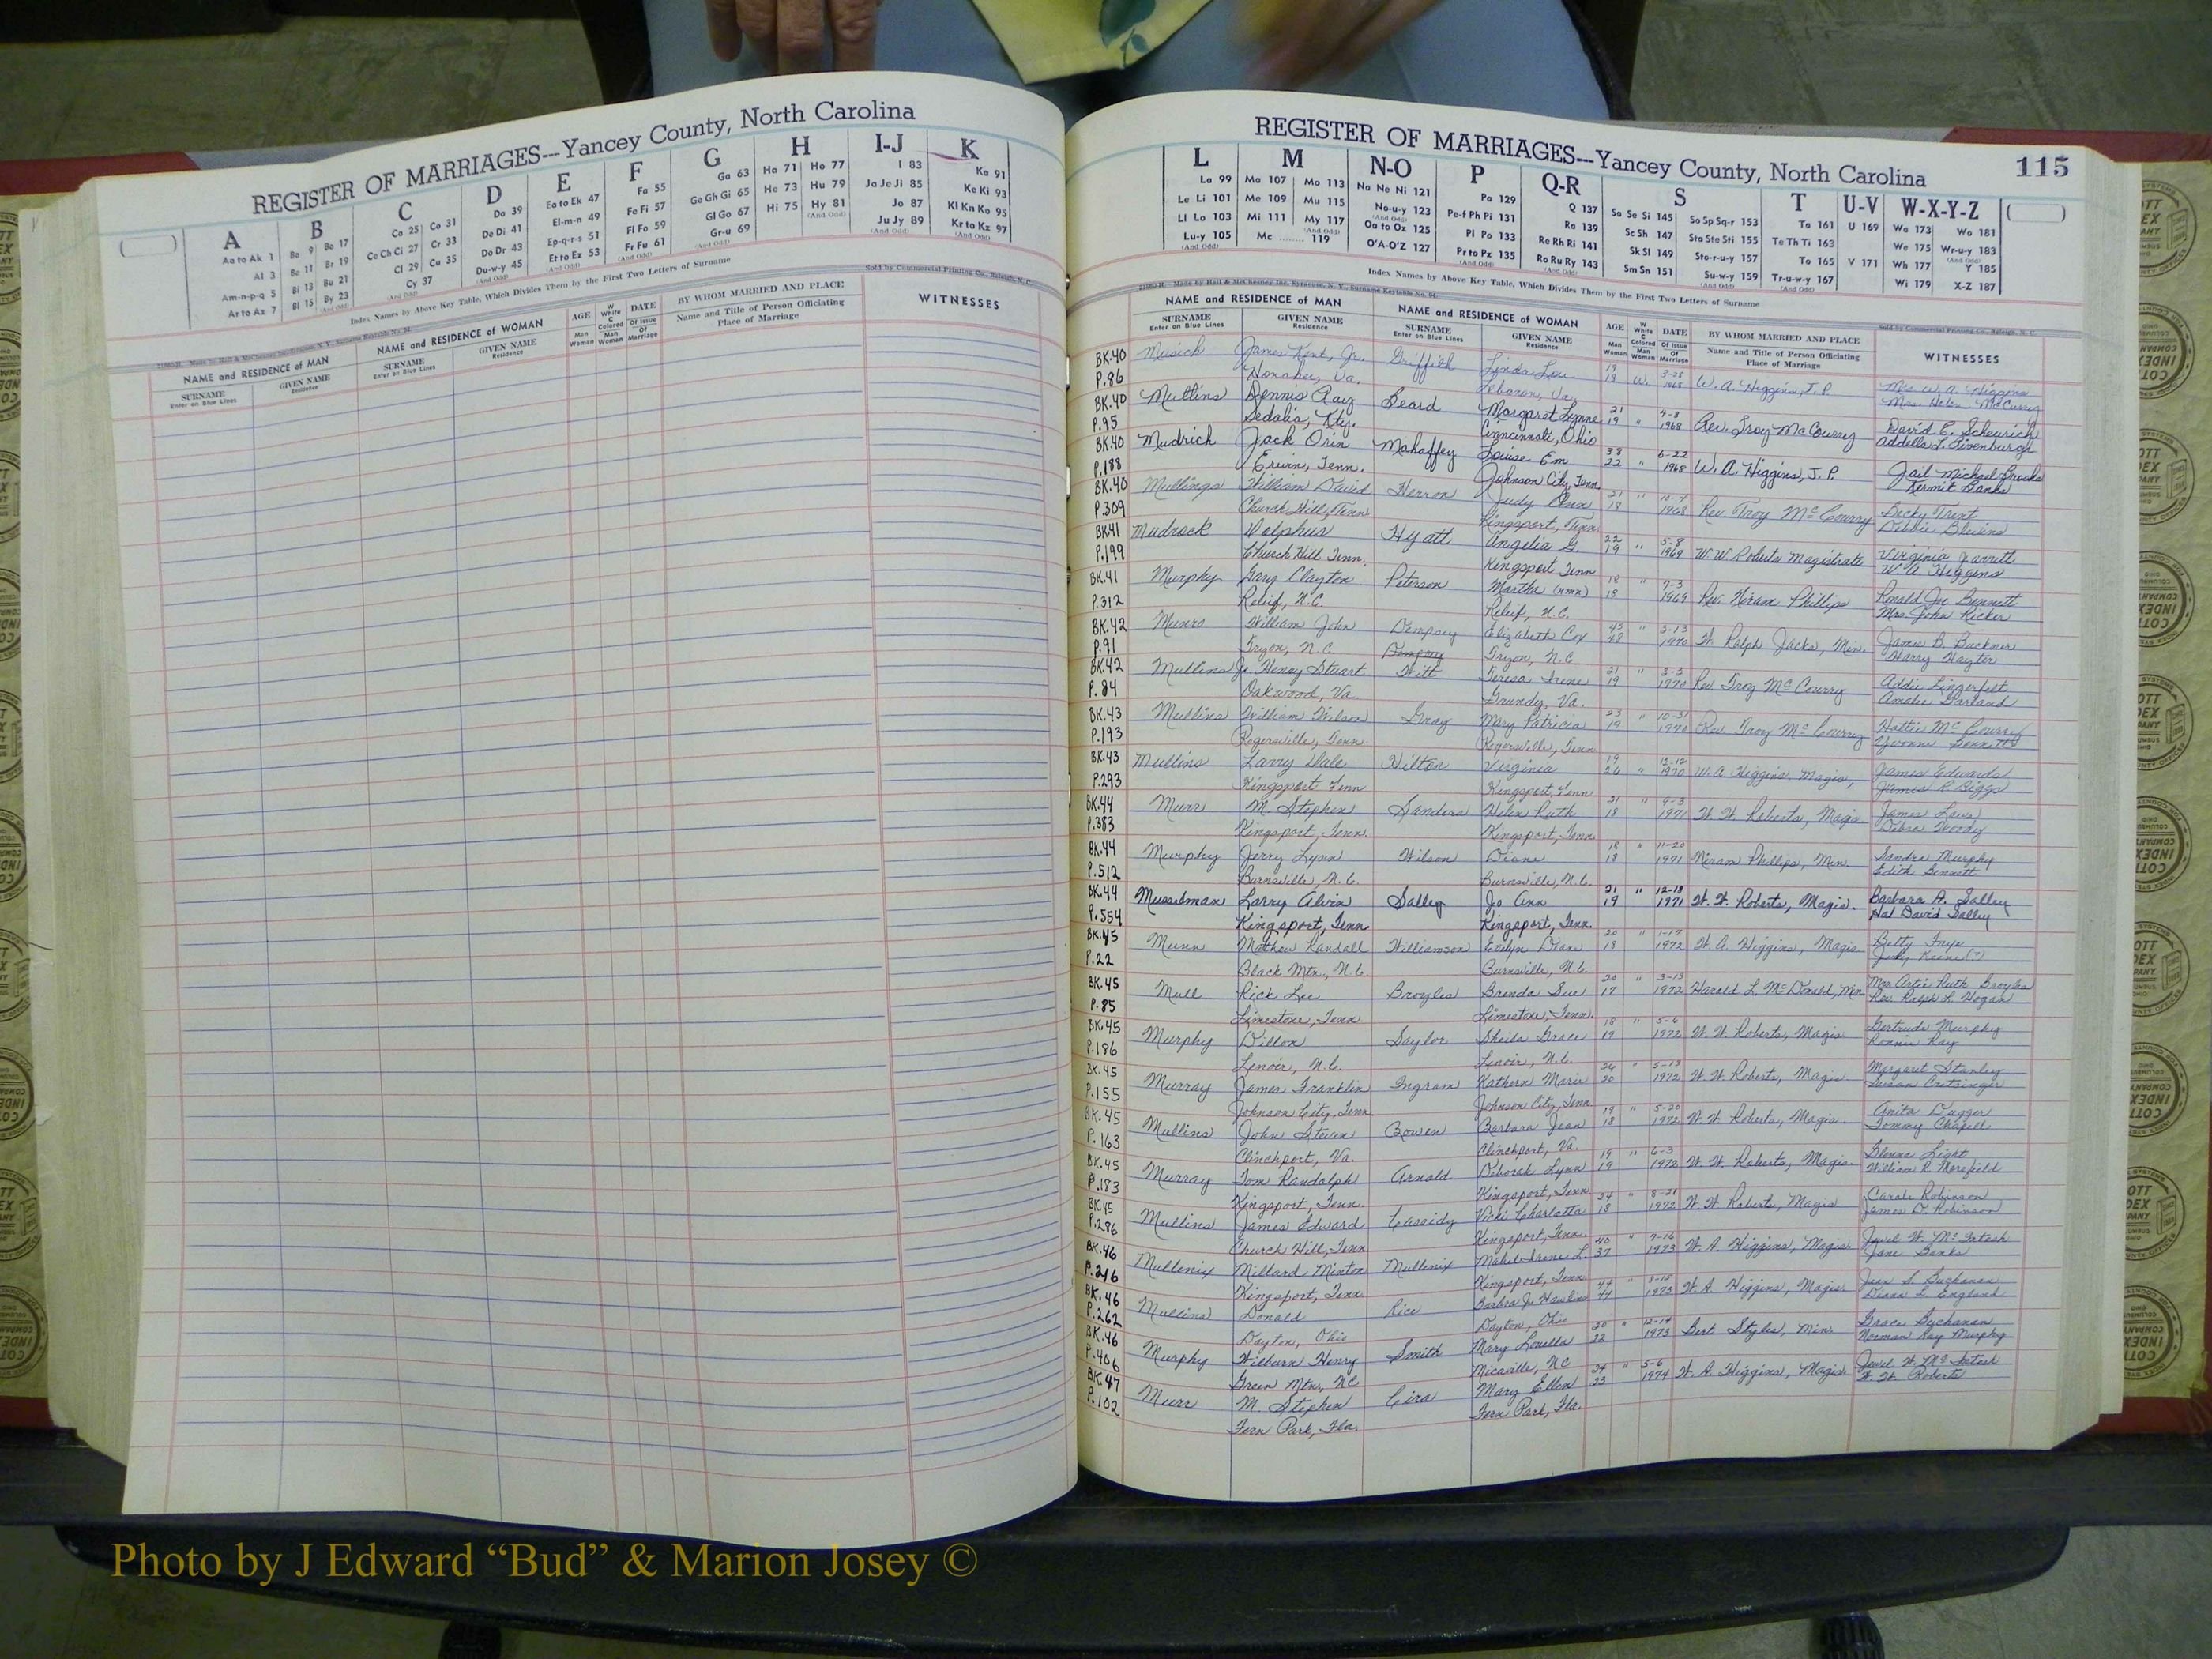 REGISTER OF MARRIAGES---Yancey County, North Carolina
A
B
C
D
E
F
G
H
I-J
K
Aa to Ak 1
Al 3
Am-n-p-q 5
Ar to Az 7
Ba 9 Bo 17
Be 11 Br 19
Bi 13 Bu 21
Bl 15 By 23
Ca 25 Co 31
Ce Ch Ci 27 Cr 33
Cl 29 Cu 35
Cy 37
Da 39
De Di 41
Do Dr 43
Du-w-y 45
Ea to Ek 47
El-m-n 49
Ep-q-r-s 51
Et to Ez 53
Fa 55
Fe Fi 57
Fl Fo 59
Fr Fu 61
Ga 63
Ge Gh Gi 65
Gl Go 67
Gr-u 69
Ha 71 Ho 77
He 73 Hu 79
Hi 75 Hy 81
I 83
Ja Je Ji 85
Jo 87
Ju Jy 89
Ka 91
Ke Ki 93
Kl Kn Ko 95
Kr to Kz 97
Index Names by Above Key Table, Which Divides Them by the First Two Letters of Surname
Sold by Commercial Printing Co., Raleigh, N. C.
NAME and RESIDENCE OF MAN
NAME and RESIDENCE OF WOMAN
SURNAME
Enter on Blue Lines
GIVEN NAME
Residence
SURNAME
Enter on Blue Lines
GIVEN NAME
Residence
AGE
Man
Woman
W White
C Colored
Man
Woman
DATE
Of Issue
Of Marriage
BY WHOM MARRIED AND PLACE
Name and Title of Person Officiating
Place of Marriage
WITNESSES
REGISTER OF MARRIAGES---Yancey County, North Carolina
115
L
M
N-O
P
Q-R
S
T
U-V
W-X-Y-Z
La 99
Le Li 101
Ll Lo 103
Lu-y 105
(And Odd)
Ma 107 Mo 113
Me 109 Mu 115
Mi 111 My 117
Mc ........ 119
Na Ne Ni 121
No-u-y 123
Oa to Oz 125
O'A-O'Z 127
Pa 129
Pe-f Ph Pi 131
Pl Po 133
Pr to Pz 135
Q 137
Ra 139
Re Rh Ri 141
Ro Ru Ry 143
Sa Se Si 145 So Sp Sq-r 153
Sc Sh 147 Sta Ste Sti 155
Sk Sl 149 Sto-r-u-y 157
Sm Sn 151 Su-w-y 159
Ta 161
Te Th Ti 163
To 165
Tr-u-w-y 167
U 169
V 171
Wa 173 Wo 181
We 175 Wr-u-y 183
Wh 177 Y 185
Wi 179 X-Z 187
Index Names by Above Key Table, Which Divides Them by the First Two Letters of Surname
21080-H. Made by Hall & McChesney Inc. Syracuse, N. Y. Surname Keytable No. 94.
Sold by Commercial Printing Co., Raleigh, N. C.
NAME and RESIDENCE OF MAN
NAME and RESIDENCE OF WOMAN
SURNAME
Enter on Blue Lines
GIVEN NAME
Residence
SURNAME
Enter on Blue Lines
GIVEN NAME
Residence
AGE
Man
Woman
W White
C Colored
Man
Woman
DATE
Of Issue
Of Marriage
BY WHOM MARRIED AND PLACE
Name and Title of Person Officiating
Place of Marriage
WITNESSES
BK.40 Musick James Kent, Jr. Griffith Linda Lou 19 W. 1968 W. A. Higgins, J. P. Mrs. W. A. Higgins
P.86 Honaker, Va. Lebanon, Va. 18 Mrs. Helen McCurry
BK.40 Mullins Dennis Ray Beard Margaret Lynne 21 " 4-8 Rev. Troy McCourry David E. Scheurich
P.95 Sedalia, Kty. Cincinnati, Ohio 19 1968 Addella L.
BK.40 Mudrich Jack Orin Mahaffey Louise Em 38 " 6-22 W. A. Higgins, J. P. Gail Michael Brooks
P.188 Erwin, Tenn. Johnson City, Tenn. 22 1968 Kermit Banks
BK.40 Mullings William David Herron Judy Ann 21 " 10-7 Rev. Troy McCourry Dicky Trent
P.309 Church Hill, Tenn. Kingsport, Tenn. 18 1968 Debbie Blevins
BK41 Mudrock Dolphus Hyatt Angelia G. 22 " 5-8 W W Roberts Magistrate Virginia Jarrett
P.199 Church Hill Tenn. Kingsport Tenn 19 1969 W. A. Higgins
BK.41 Murphy Gary Clayton Peterson Martha (nmn) 18 " 7-3 Rev. Hiram Phillips Ronald Joe Bennett
P.312 Relief, N.C. Relief, N.C. 18 1969 Mrs. John Ricker
BK.42 Munro William John Dempsey Elizabeth Coy 45 " 3-13 W. Ralph Jacks, Min. James B. Buckner
P.91 Tryon, N.C. Dempsey Tryon, N.C. 48 1970 Harry Hayter
BK.42 Mullins Jr. Henry Stuart Witt Teresa Irene 21 " 3-3 Rev Troy McCourry Addie Lingerfelt
P.84 Oakwood, Va. Grundy, Va. 19 1970 Amalee Garland
BK.43 Mullins William Wilson Gray Mary Patricia 23 " 10-31 Rev Troy McCourry Hattie McCourry
P.193 Rogersville, Tenn. Rogersville, Tenn 19 1970 Yvonne Bennett
BK.43 Mullins Larry Dale Hilton Virginia 19 " 12-12 W. A. Higgins, Magis, James Edwards
P.293 Kingsport Tenn Kingsport, Tenn 26 1970 James R Biggs
BK.44 Murr M. Stephen Sanders Helen Ruth 21 " 9-3 W. W. Roberts, Magis James Laws
P.383 Kingsport, Tenn. Kingsport, Tenn. 18 1971 Debra Woody
BK.44 Murphy Jerry Lynn Wilson Diane 18 " 11-20 Hiram Phillips, Min. Sandra Murphy
P.512 Burnsville, N.C. Burnsville, N.C. 18 1971 Edith Bennett
BK.44 Musselman Larry Alvin Salley Jo Ann 21 " 12-18 W. W. Roberts, Magis. Barbara A. Salley
P.554 Kingsport, Tenn. Kingsport, Tenn. 19 1971 Hal David Salley
BK.45 Munn Mathew Randall Williamson Evelyn Diane 20 " 1-19 W. A. Higgins, Magis. Betty Faye
P.22 Black Mtn., N.C. Burnsville, N.C. 18 1972 Judy Keene (?)
BK.45 Mull Rick Lee Broyles Brenda Sue 20 " 3-13 Harold L. McDonald, Min. Mrs. Artie Ruth Broyles
P.85 Limestone, Tenn. Limestone, Tenn. 17 1972 Rev. Ralph L. Hogan
BK.45 Murphy Dillon Saylor Sheila Grace 18 " 5-6 W. W. Roberts, Magis Gertrude Murphy
P.186 Lenoir, N.C. Lenoir, N.C. 19 1972 Ronnie Ray
BK.45 Murray James Franklin Ingram Kathern Marie 26 " 5-13 W. W. Roberts, Magis Margaret Stanley
P.155 Johnson City, Tenn. Johnson City, Tenn 20 1972 Susan Cretsinger
BK.45 Mullins John Steven Bowen Barbara Jean 19 " 5-20 W. W. Roberts, Magis. Anita Dugger
P.163 Clinchport, Va. Clinchport, Va. 18 1972 Tommy Chapell
BK.45 Murray Tom Randolph Arnold Deborah Lynn 19 " 6-3 W. W. Roberts, Magis. Glenna Light
P.183 Kingsport, Tenn. Kingsport, Tenn. 19 1972 William R. Merefield
BK45 Mullins James Edward Cassidy Vicki Charlotta 24 " 8-21 W W Roberts, Magis Carole Robinson
P.286 Church Hill, Tenn. Kingsport, Tenn. 18 1972 James D. Robinson
BK.46 Mullenix Millard Minton Mullenix Mabel Irene L. 40 " 7-16 W. A. Higgins, Magis. Jewel W. McIntosh
P.216 Kingsport, Tenn. Kingsport, Tenn. 37 1973 Jane Banks
BK.46 Mullins Donald Rice Barbra Jo Hawkins 44 " W. A. Higgins, Magis. Jean S. Buchanan
P.262 Dayton, Ohio Dayton, Ohio 44 1973 Diana L. England
BK.46 Murphy Wilburn Henry Smith Mary Louella 20 " 12-14 Bert Styles, Min. Grace Buchanan
P.406 Green Mtn, NC Micaville, NC 22 1973 Norman Ray Murphy
BK.47 Murr M. Stephen Cira Mary Ellen 24 " 5-6 W. A. Higgins, Magis. Jewel W. McIntosh
P.102 Fern Park, Fla. Fern Park, Fla. 23 1974 W. W. Roberts
Photo by J Edward “Bud” & Marion Josey ©